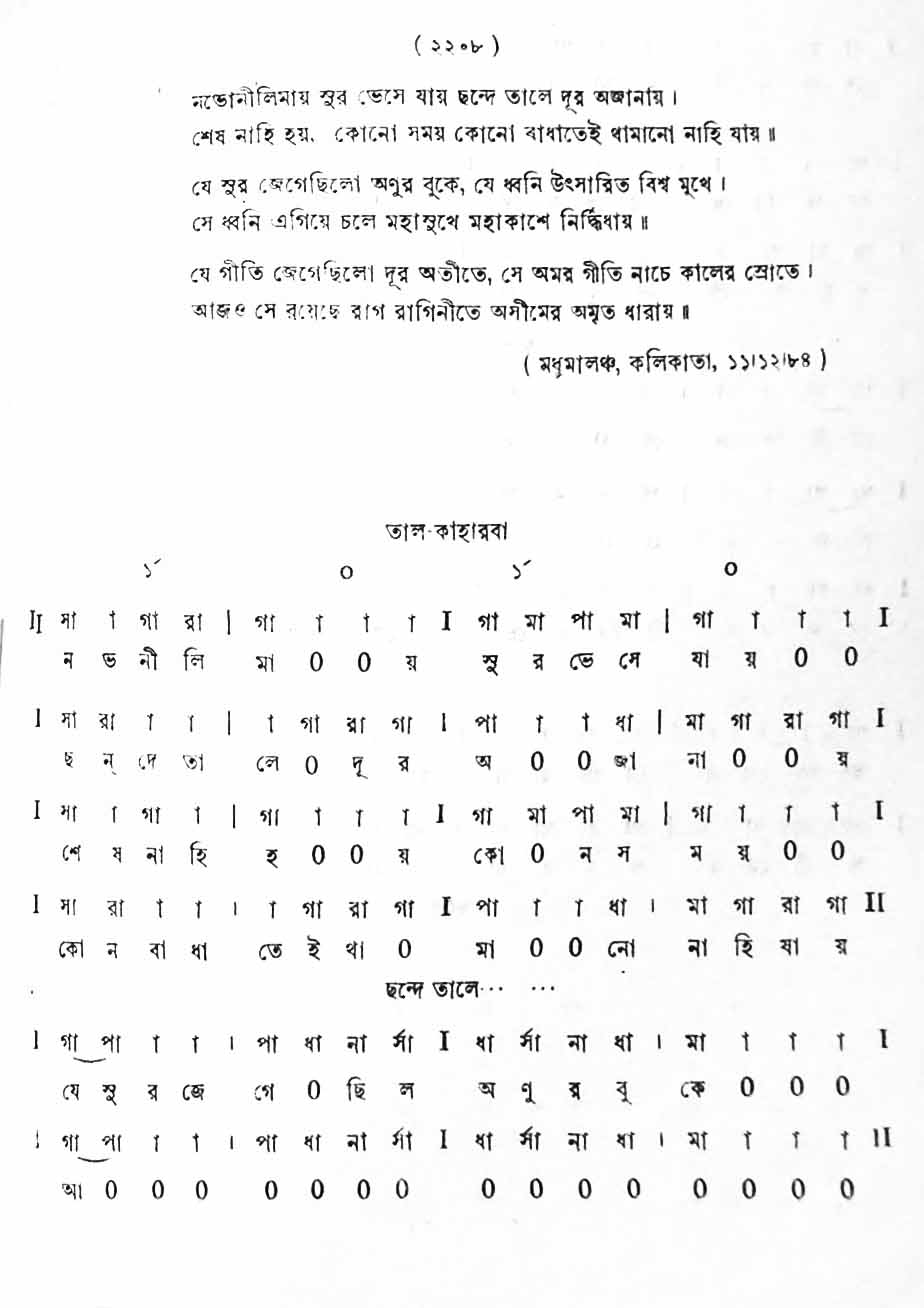 ( ২২০৮ )
নভোনীলিমায় সুর ভেসে যায় ছন্দে তালে দূর অজানায় ।
শেষ নাহি হয়. কোনো সময় কোনো বাধাতেই থামানো নাহি যায় ॥
যে সুর জেগেছিলো অণুর বুকে, যে ধ্বনি উৎসারিত বিশ্ব মুখে ।
সে ধ্বনি এগিয়ে চলে মহাসুখে মহাকাশে নির্দ্বিধায় ॥
যে গীতি জেগেছিলো দূর অতীতে, সে অমর গীতি নাচে কালের স্রোতে ।
আজও সে রয়েছে রাগ রাগিনীতে অসীমের অমৃত ধারায় ॥
( মধুমালঞ্চ, কলিকাতা, ১১।১২।৮৪ )
তাল-কাহারবা
১´ ০ ১´ ০
II সা া গা রা | গা া া া I গা মা পা মা | গা া া া I
ন ভ নী লি মা 0 0 য় সু র ভে সে যা য় 0 0
I সা রা া া | া গা রা গা I পা া া ধা | মা গা রা গা I
ছ ন্ দে তা লে 0 দূ র অ 0 0 জা না 0 0 য়
I সা া গা া | গা া া া I গা মা পা মা | গা া া া I
শে ষ না হি হ 0 0 য় কো 0 ন স ম য় 0 0
I সা রা া া । া গা রা গা I পা া া ধা । মা গা রা গা II
কো ন বা ধা তে ই থা 0 মা 0 0 নো না হি যা য়
ছন্দে তালে··· ···
I গা পা া া । পা ধা না র্সা I ধা র্সা না ধা । মা া া া I
যে সু র জে গে 0 ছি ল অ ণু র বু কে 0 0 0
I গা পা া া । পা ধা না র্সা I ধা র্সা না ধা । মা া া া II
আ 0 0 0 0 0 0 0 0 0 0 0 0 0 0 0